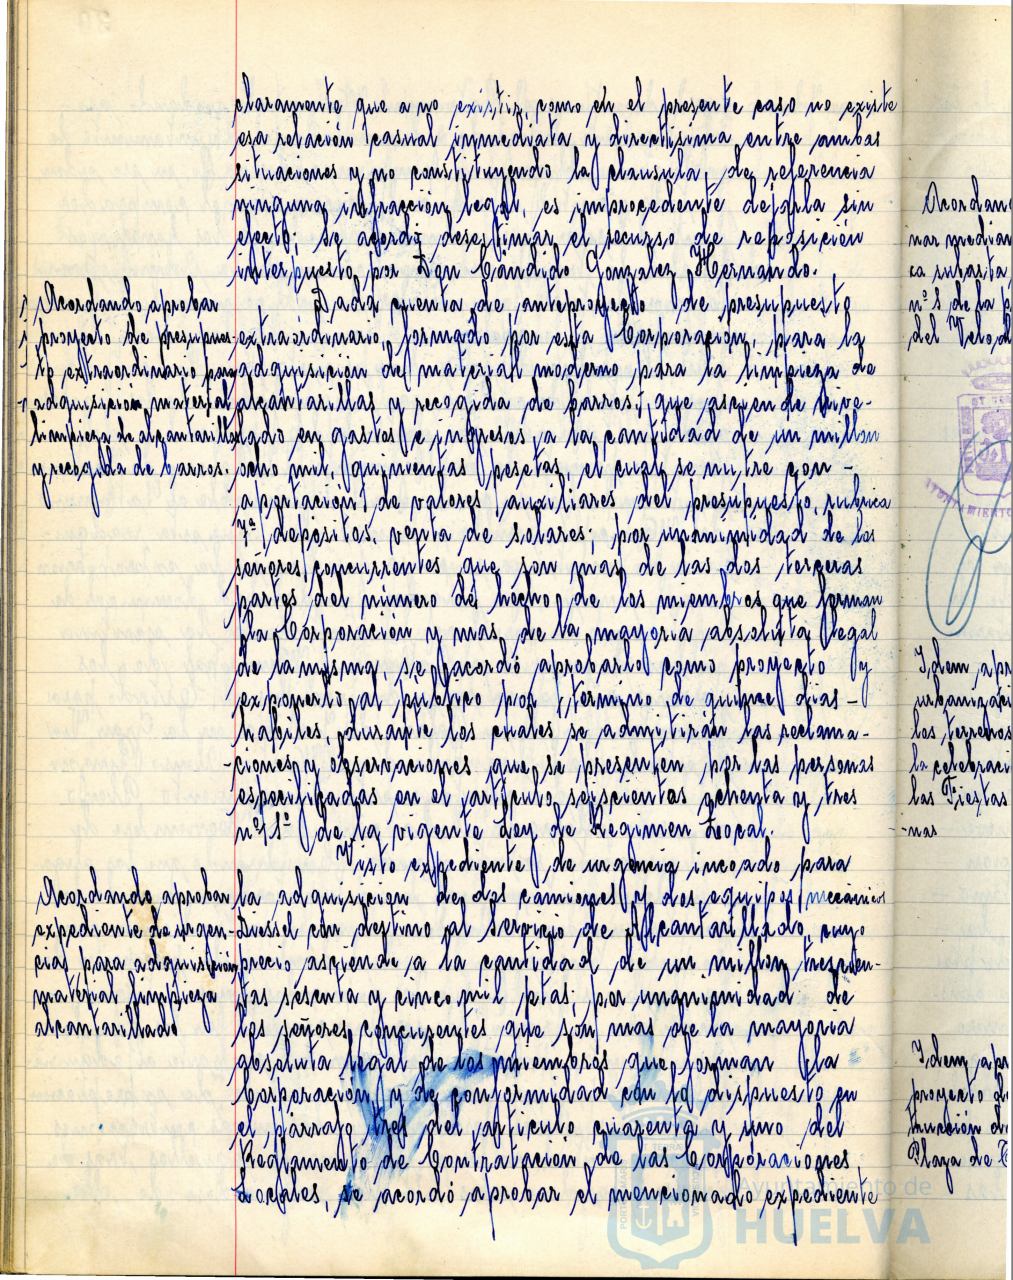 claramente que a no existir, como en el presente caso no existe
esa relación casual inmediata y directísima entre ambas
situaciones y no constituyendo la clausula, de referencia
ninguna infracción legal, es improcedente dejarla sin
efecto: Se acordó desestimar el recurso de reposición
interpuesto por Don Cándido Gonzalez Hernando.
Acordando aprobar
proyecto de presupues-
to extraordinario para
adquisición material
limpieza de alcantarillas
y recogida de barros.
Dada cuenta de anteproyecto de presupuesto
extraordinario, formado por esta Corporación, para la
adquisición de material moderno para la limpieza de
alcantarillas y recogida de barros, que asciende nive-
lado en gastos e ingresos a la cantidad de un millon
ocho mil, quinientas pesetas, el cual se nutre con-
aportación de valores auxiliares del presupuesto, rubrica
7ª depósitos, venta de solares; por unanimidad de los
señores concurrentes que son mas de las dos terceras
partes del número de hecho de los miembros que forman
la Corporación y mas de la mayoria absoluta legal
de la misma, se acordó aprobarlo como proyecto y
exponerlo al público por término de quince dias-
habiles, durante los cuales se admitirán las reclama-
-ciones y observaciones que se presenten por las personas
especificadas en el artículo seiscientos ochenta y tres
nº 1º de la vigente Ley de Régimen Local.
Acordando aprobar
expediente de urgen-
cia para adquisición
material limpieza
alcantarillado
Visto expediente de urgencia incoado para
la adquisición de dos camiones y dos equipos mecánicos
Diessel con destino al Servicio de Alcantarillado, cuyo
precio asciende a la cantidad de un millon trescien-
tas sesenta y cinco mil ptas; por unanimidad de
los señores concurrentes que son mas de la mayoria
absoluta legal de los miembros que forman la
Corporación y de conformidad con lo dispuesto en
el párrafo tres del artículo cuarenta y uno del
Reglamento de Contratación de las Corporaciones
Locales, se acordó aprobar el mencionado expediente
Acordan
nar median
ca subasta
nº 1 de la p
del Velo, d
Idem apr
urbanizaci
los terrenos
la celebraci
las Fiestas
-nas
Idem, ap
proyecto d
trucción d
Plaza de T
Ayuntamiento de
HUELVA